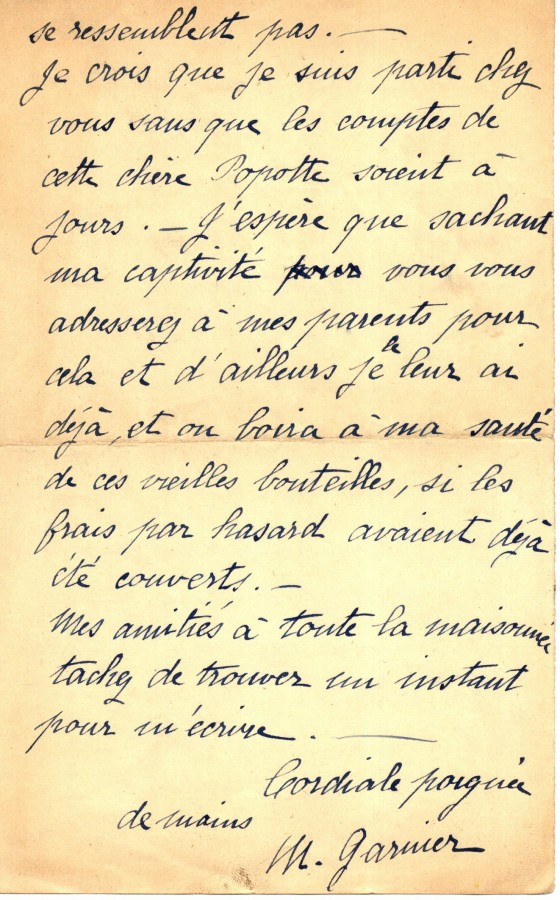 se ressemblent pas. —
Je crois que je suis parti chez
vous sans que les comptes de
cette chère Popotte soient à
jours. — J'espère que sachant
ma captivité pour vous vous
adresserez à mes parents pour
cela et d'ailleurs je le leur ai
déjà, et on boira à ma santé
de ces vieilles bouteilles, si les
frais par hasard avaient déjà
été couverts. —
Mes amitiés à toute la maisonnée
tachez de trouver un instant
pour m'écrire. —
Cordiale poignée
de mains
M. Garnier